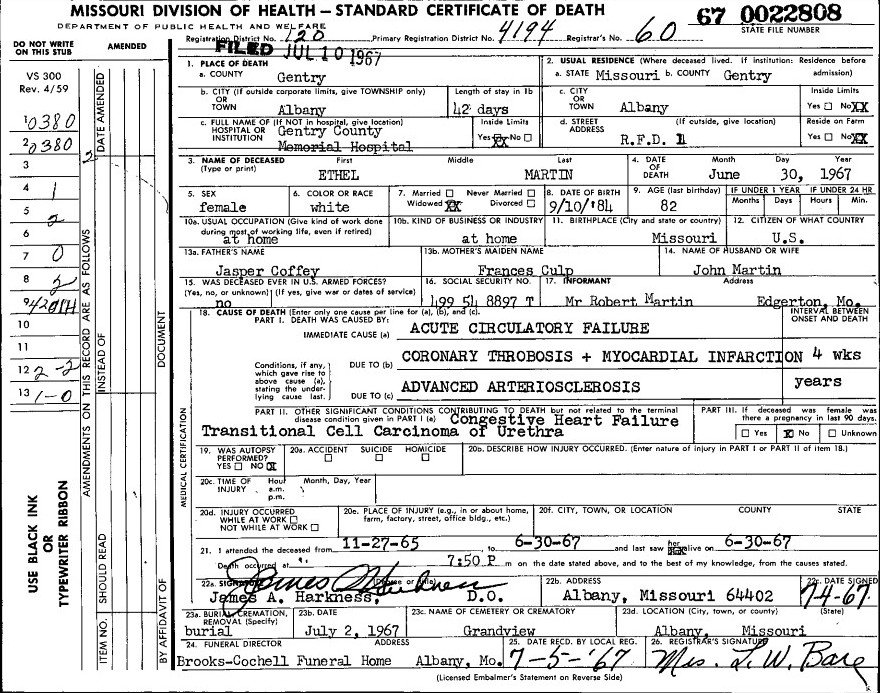 MISSOURI DIVISION OF HEALTH — STANDARD CERTIFICATE OF DEATH
67 0022808
DEPARTMENT OF PUBLIC HEALTH AND WELFARE
STATE FILE NUMBER
Registration District No. 120 Primary Registration District No. 4194 Registrar's No. 60
FILED JUL 10 1967
DO NOT WRITE ON THIS STUB
AMENDED
VS 300
Rev. 4/59
1 0380
2 0380
3
4 1
5 2
6
7 0
8 2
9
10
11
12 2-2
13 1-0
USE BLACK INK
OR
TYPEWRITER RIBBON
AMENDMENTS ON THIS RECORD ARE AS FOLLOWS
DATE AMENDED
INSTEAD OF
SHOULD READ
ITEM NO.
DOCUMENT
BY AFFIDAVIT OF
1. PLACE OF DEATH
a. COUNTY Gentry
2. USUAL RESIDENCE (Where deceased lived. If institution: Residence before admission)
a. STATE Missouri b. COUNTY Gentry
b. CITY (If outside corporate limits, give TOWNSHIP only) OR TOWN Albany
Length of stay in 1b 42 days
c. CITY OR TOWN Albany
Inside Limits Yes ☐ No XX
c. FULL NAME OF (If NOT in hospital, give location) HOSPITAL OR INSTITUTION Gentry County Memorial Hospital
Inside Limits Yes XX No ☐
d. STREET ADDRESS (If outside, give location) R.F.D. 1
Reside on Farm Yes ☐ No XX
3. NAME OF DECEASED (Type or print) First ETHEL Middle Last MARTIN
4. DATE OF DEATH Month June Day 30, Year 1967
5. SEX female
6. COLOR OR RACE white
7. Married ☐ Never Married ☐ Widowed XX Divorced ☐
8. DATE OF BIRTH 9/10/'84
9. AGE (last birthday) 82
IF UNDER 1 YEAR Months Days
IF UNDER 24 HR Hours Min.
10a. USUAL OCCUPATION (Give kind of work done during most of working life, even if retired) at home
10b. KIND OF BUSINESS OR INDUSTRY at home
11. BIRTHPLACE (City and state or country) Missouri
12. CITIZEN OF WHAT COUNTRY U.S.
13a. FATHER'S NAME Jasper Coffey
13b. MOTHER'S MAIDEN NAME Frances Culp
14. NAME OF HUSBAND OR WIFE John Martin
15. WAS DECEASED EVER IN U.S. ARMED FORCES? (Yes, no, or unknown) (If yes, give war or dates of service) no
16. SOCIAL SECURITY NO. 499 51 8897 T
17. INFORMANT Mr Robert Martin Address Edgerton, Mo.
18. CAUSE OF DEATH (Enter only one cause per line for (a), (b), and (c).
PART I. DEATH WAS CAUSED BY:
INTERVAL BETWEEN ONSET AND DEATH
IMMEDIATE CAUSE (a) ACUTE CIRCULATORY FAILURE
Conditions, if any, which gave rise to above cause (a), stating the underlying cause last.
DUE TO (b) CORONARY THROBOSIS + MYOCARDIAL INFARCTION 4 wks
DUE TO (c) ADVANCED ARTERIOSCLEROSIS years
MEDICAL CERTIFICATION
PART II. OTHER SIGNIFICANT CONDITIONS CONTRIBUTING TO DEATH but not related to the terminal disease condition given in PART I (a) Congestive Heart Failure
Transitional Cell Carcinoma of Urethra
PART III. If deceased was female was there a pregnancy in last 90 days.
☐ Yes ☒ No ☐ Unknown
19. WAS AUTOPSY PERFORMED? YES ☐ NO ☒
20a. ACCIDENT ☐ SUICIDE ☐ HOMICIDE ☐
20b. DESCRIBE HOW INJURY OCCURRED. (Enter nature of injury in PART I or PART II of item 18.)
20c. TIME OF INJURY Hour a.m. p.m. Month, Day, Year
20d. INJURY OCCURRED WHILE AT WORK ☐ NOT WHILE AT WORK ☐
20e. PLACE OF INJURY (e.g., in or about home, farm, factory, street, office bldg., etc.)
20f. CITY, TOWN, OR LOCATION COUNTY STATE
21. I attended the deceased from 11-27-65 to 6-30-67 and last saw her alive on 6-30-67
Death occurred at 7:50 P m on the date stated above, and to the best of my knowledge, from the causes stated.
22a. SIGNATURE (Degree or title) James A. Harkness
James A. Harkness, D.O.
22b. ADDRESS Albany, Missouri 64402
22c. DATE SIGNED 7-4-67
23a. BURIAL, CREMATION, REMOVAL (Specify) burial
23b. DATE July 2, 1967
23c. NAME OF CEMETERY OR CREMATORY Grandview
23d. LOCATION (City, town, or county) (State) Albany, Missouri
24. FUNERAL DIRECTOR ADDRESS Brooks-Cochell Funeral Home Albany, Mo.
25. DATE RECD. BY LOCAL REG. 7-5-'67
26. REGISTRAR'S SIGNATURE Mrs. L. W. Bare
(Licensed Embalmer's Statement on Reverse Side)